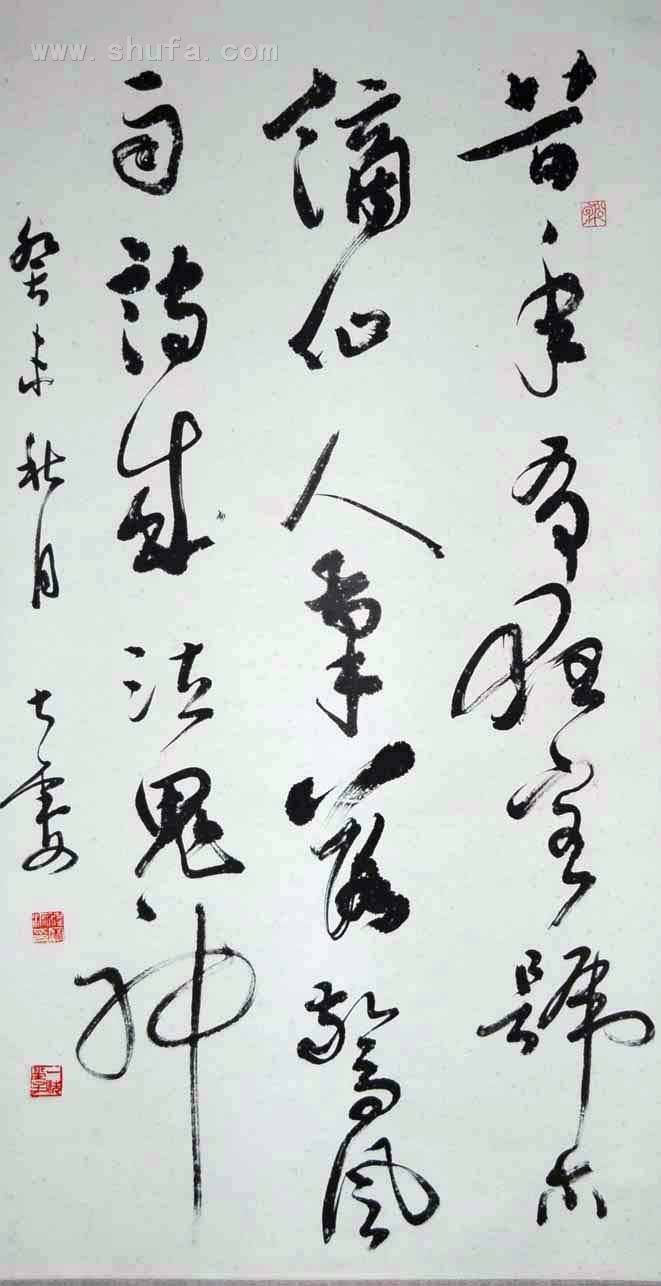 www.shufa.com
昔年有狂客號尔
謫仙人筆落驚風
雨詩成泣鬼神
癸未秋月